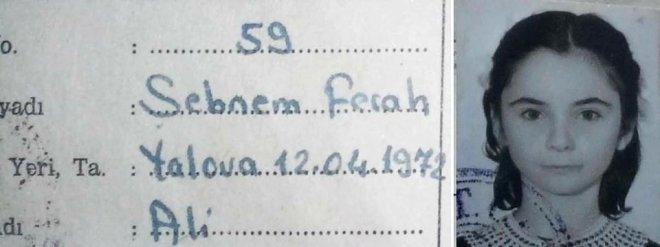 o. : 59
yadı : Sebnem Ferah
Yeri, Ta. : Yalova 12.04.1972
dı : Ali